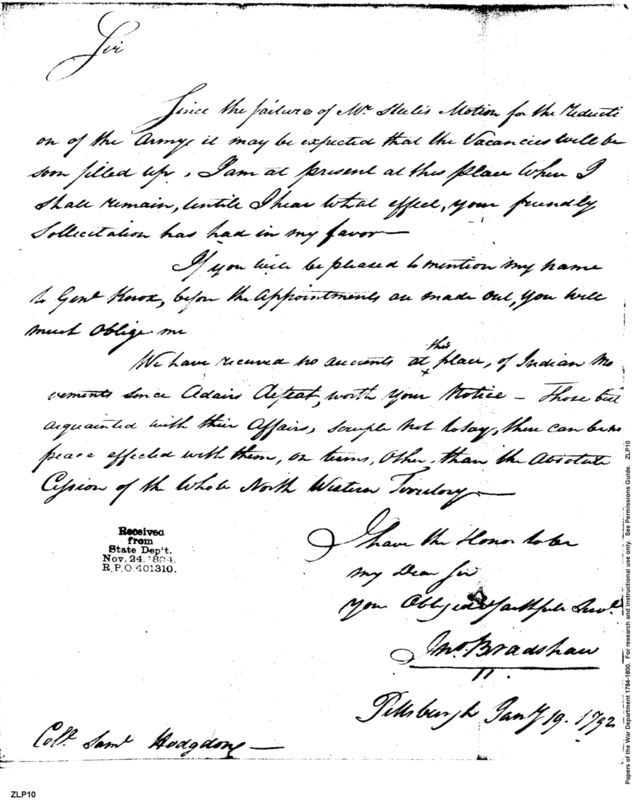 Sir
Since the failure of Mr Steele's Motion for the Reducti
on of the Army it may be expected that the Vacancies will be
soon filled up, I am at present at this place where I
shall remain, untill I hear what effect, your friendly
Sollicitation has had in my favor —
If you will be pleased to mention my name
to Genl Knox, before the Appointments are made out, you will
much oblige me
We have received no accounts at this place, of Indian Mo
vements since Adairs defeat, worth your Notice — Those best
acquainted with their Affairs, scruple not to say, there can be no
peace effected with them, on terms, other, than the Absolute
Cession of the whole North Western Territory —
I have the Honor to be
my Dear Sir
Your Obliged & faithful Servt
Jno. Bradshaw
Pittsburgh Jany 19. 1792
Coll. Saml Hodgdon —
Received
from
State Dep't.
Nov. 24. 1894.
R.P.O. 401310.
Papers of the War Department 1784-1800. For research and instructional use only. See Permissions Guide. ZLP10
ZLP10